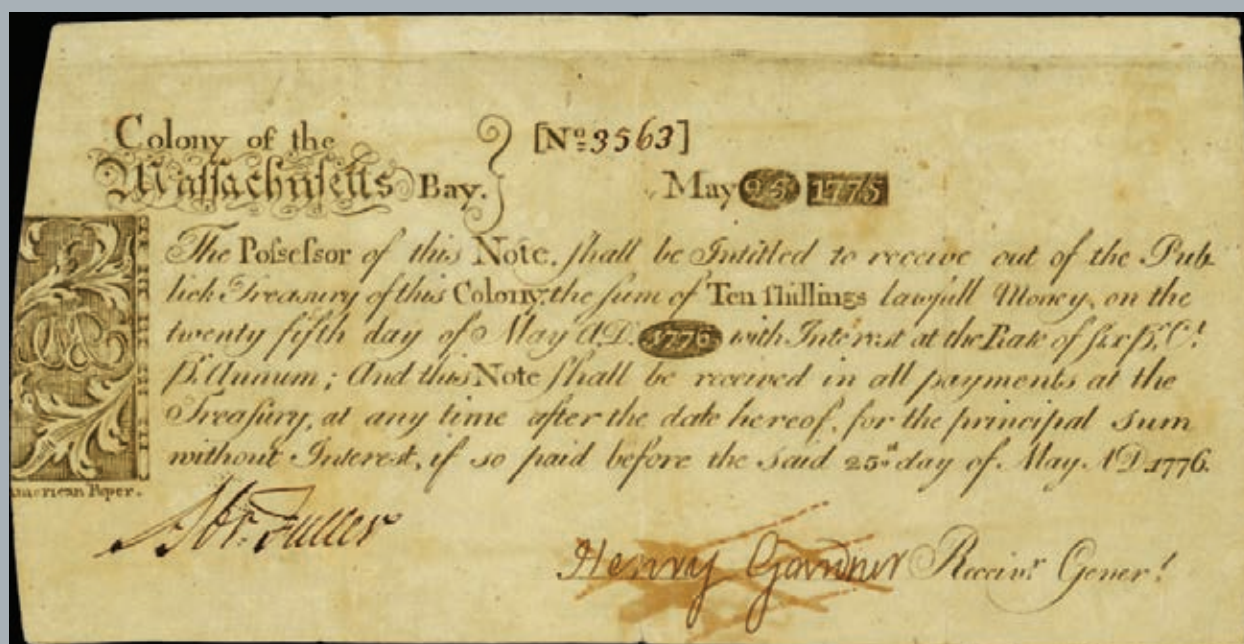 Colony of the
Maſſachuſetts Bay.
[No. 3563]
May 25 1775
The Poſseſsor of this Note, ſhall be Intitled to receive out of the Pub-
lick Treasury of this Colony, the ſum of Ten ſhillings lawfull Money, on the
twenty fifth day of May A.D. 1776 with Interest at the Rate of ſix ⅌. Ct.
⅌. Annum; And this Note ſhall be received in all payments at the
Treaſury, at any time after the date hereof, for the principal Sum
without Interest, if so paid before the said 25th day of May A.D. 1776.
American Paper.
Abr. Fuller
Henry Gardner Receivr. Generl.